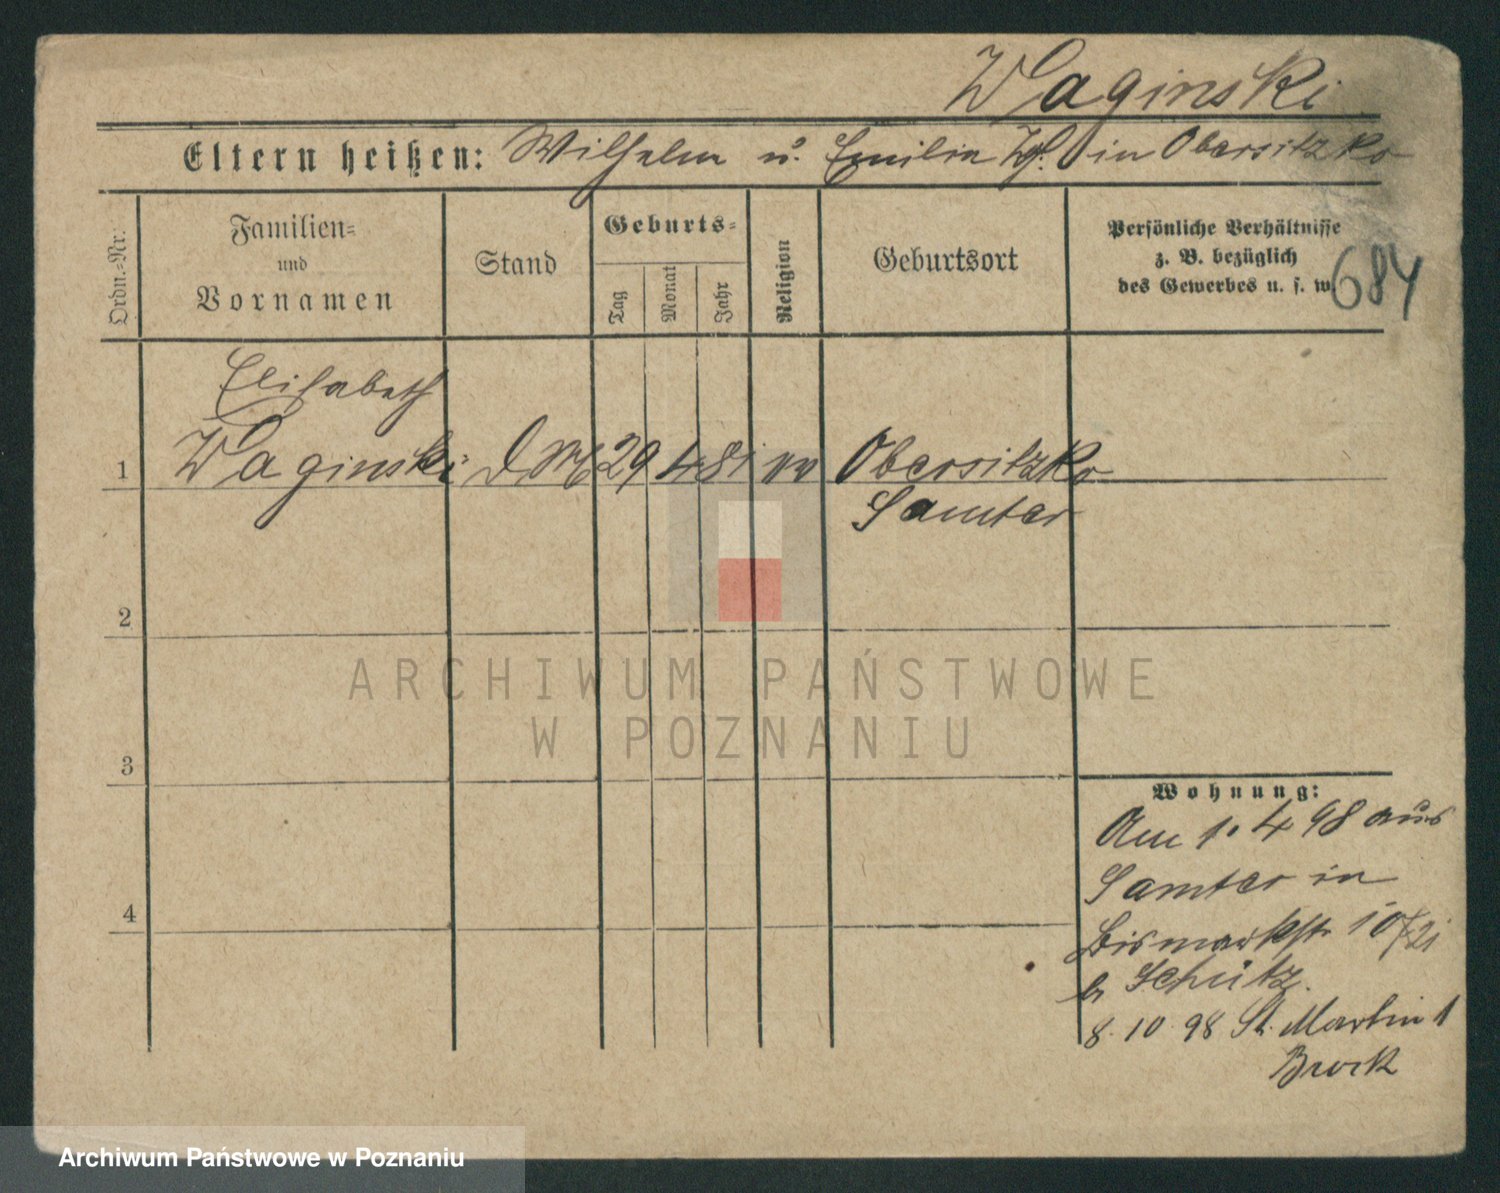 Waginski
Eltern heißen: Wilhelm u. Emilia in Obersitzko
Ordn.-Nr.
Familien-
und
Vornamen
Stand
Geburts-
Tag
Monat
Jahr
Religion
Geburtsort
Persönliche Verhältnisse
z. B. bezüglich
des Gewerbes u. s. w.
684
Elisabeth
1 Waginski 29 4 81 Obersitzko
Samter
2
3
4
ARCHIWUM PAŃSTWOWE
W POZNANIU
Wohnung:
Am 1. 4 98 aus
Samter in
Bismarkstr 10
b Schütz.
8. 10. 98 St. Martin 1
Brock
Archiwum Państwowe w Poznaniu